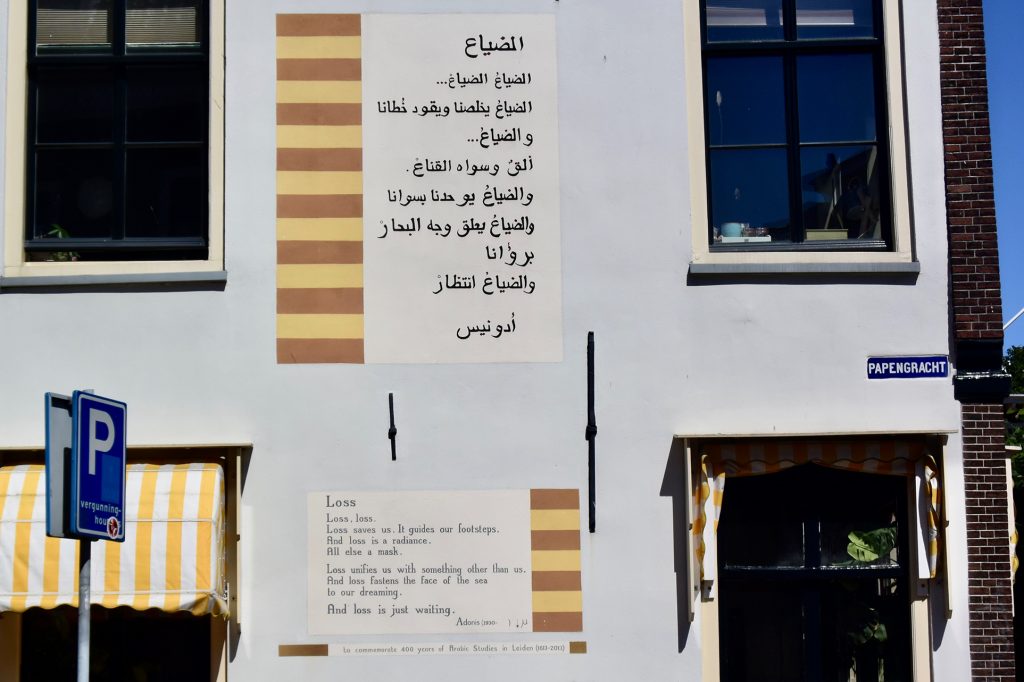 الضياع
الضياعُ الضياعْ...
الضياعُ يخلصنا ويقود خُطانا
والضياعْ...
ألقٌ وسواه القناعْ.
والضياعُ يوحدنا بسوانا
والضياعُ يعلق وجه البحارْ
برؤانا
والضياعُ انتظارْ
أدونيس
PAPENGRACHT
P
vergunning-
Loss
Loss, loss.
Loss saves us. It guides our footsteps.
And loss is a radiance.
All else a mask.
Loss unifies us with something other than us.
And loss fastens the face of the sea
to our dreaming.
And loss is just waiting.
Adonis (1930-
to commemorate 400 years of Arabic Studies in Leiden (1613-2013)